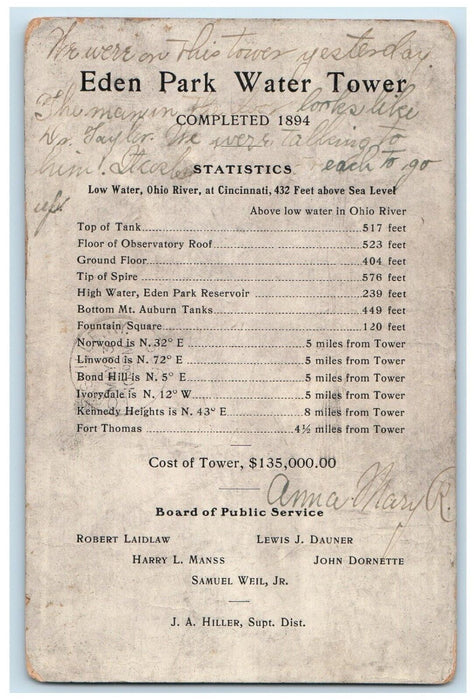 We were on this tower yesterday.
Eden Park Water Tower
The man in the door looks like
COMPLETED 1894
Dr. Taylor. We were talking to
him. It costs each to go
STATISTICS
up.
Low Water, Ohio River, at Cincinnati, 432 Feet above Sea Level
Above low water in Ohio River
Top of Tank 517 feet
Floor of Observatory Roof 523 feet
Ground Floor 404 feet
Tip of Spire 576 feet
High Water, Eden Park Reservoir 239 feet
Bottom Mt. Auburn Tanks 449 feet
Fountain Square 120 feet
Norwood is N. 32° E 5 miles from Tower
Linwood is N. 72° E 5 miles from Tower
Bond Hill is N. 5° E 5 miles from Tower
Ivorydale is N. 12° W 5 miles from Tower
Kennedy Heights is N. 43° E 8 miles from Tower
Fort Thomas 4½ miles from Tower
Cost of Tower, $135,000.00
Anna Mary R.
Board of Public Service
ROBERT LAIDLAW LEWIS J. DAUNER
HARRY L. MANSS JOHN DORNETTE
SAMUEL WEIL, JR.
J. A. HILLER, Supt. Dist.